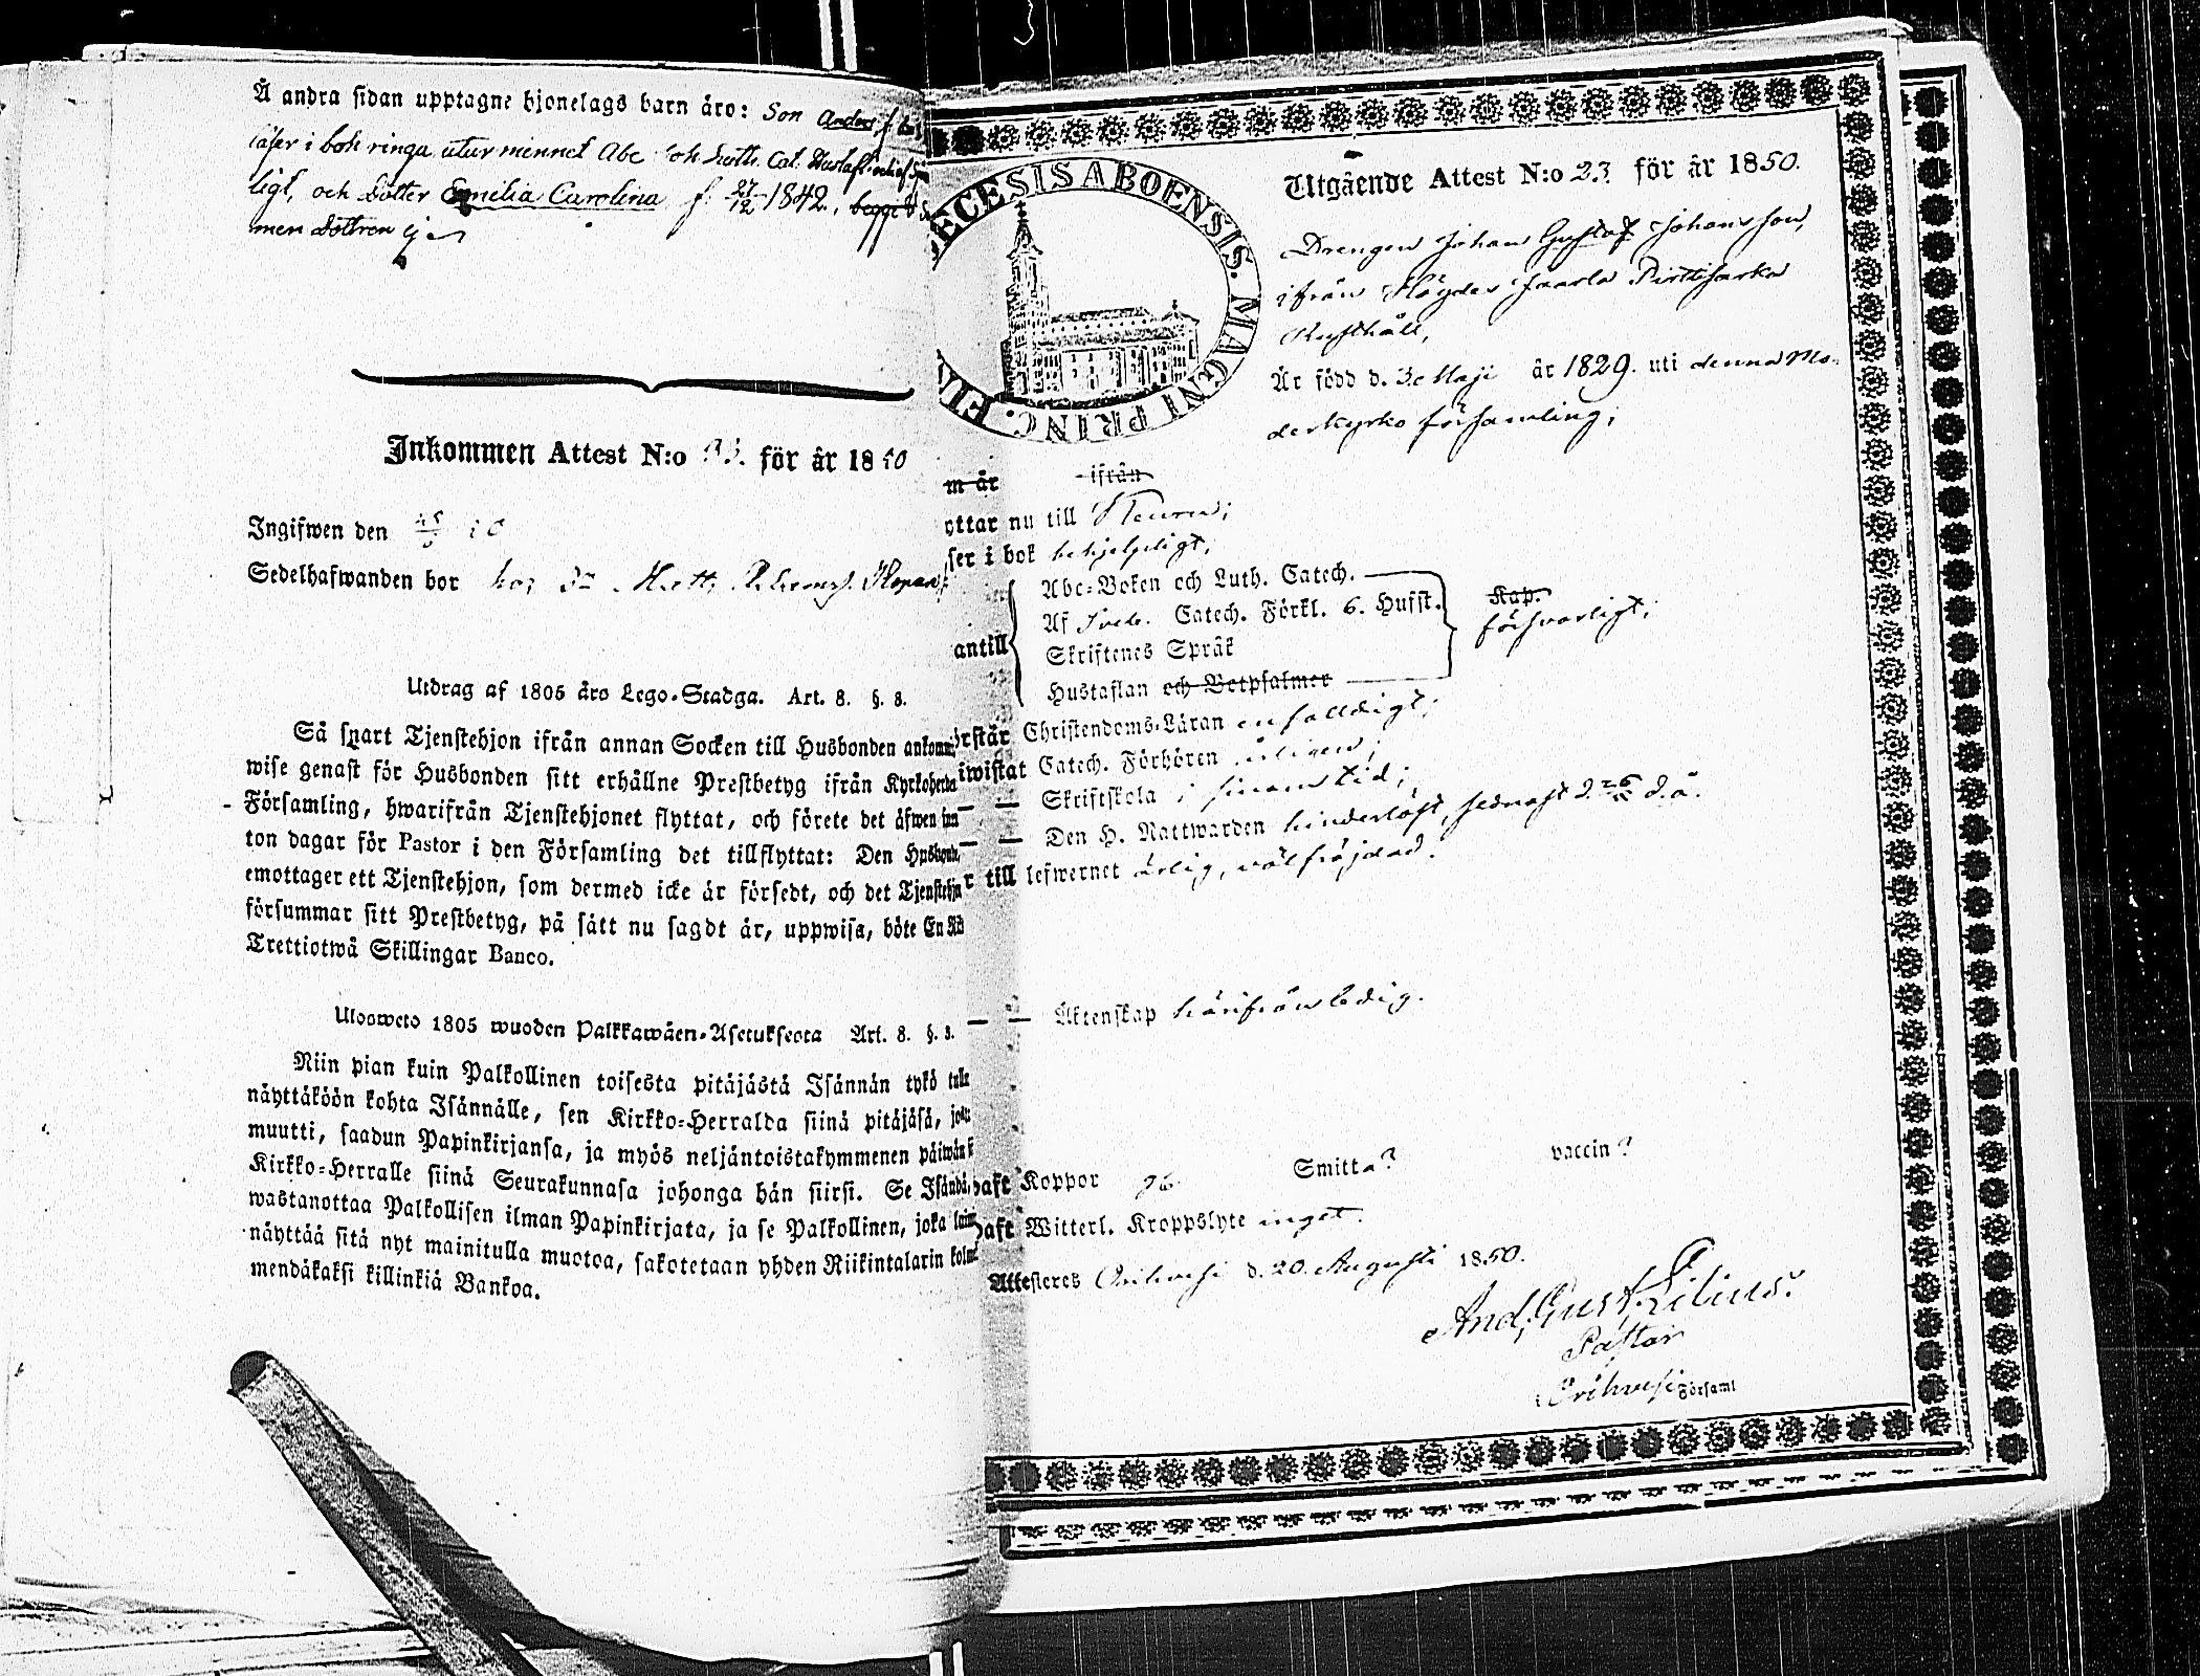 Å andra sidan upptagne hjonelags barn äro: Son Anders f.
läser i bok ringa, utur minnet Abc Luth. Cat. Hustafl.
ligt, och Dotter Emilia Carolina f. 27/12 1842., begge
men dottren ej
Inkommen Attest N:o 23. för år 1850
Ingifwen den
Sedelhafwanden bor hos
Utdrag af 1805 års Lego-Stadga. Art. 8. §. 8.
Så snart Tjenstehjon ifrån annan Socken till Husbonden
wise genast för Husbonden sitt erhållne Prestbetyg ifrån
Församling, hwarifrån Tjenstehjonet flyttat, och förete det äfwen
ton dagar för Pastor i den Församling det tillflyttat: Den
emottager ett Tjenstehjon, som dermed icke är försedt, och det
försummar sitt Prestbetyg, på sätt nu sagdt är, uppwisa, böte En
Trettiotwå Skillingar Banco.
Ulosweto 1805 wuoden Palkkawäen-Asetuksesta Art. 8. §. 8.
Niin pian kuin Palkollinen toisesta pitäjästä Isännän tykö
näyttäköön kohta Isännälle, sen Kirkko-Herralda siinä pitäjäsä,
muutti, saadun Papinkirjansa, ja myös neljäntoistakymmenen
Kirkko-Herralle siinä Seurakunnasa johonga hän siirsi. Se
wastanottaa Palkollisen ilman Papinkirjata, ja se Palkollinen, joka
näyttää sitä nyt mainitulla muotoa, sakotetaan yhden Riikintalarin
mendäkaksi killinkiä Bankoa.
ECESIS ABOENSIS. MAGNI PRINC. FIN
Utgående Attest N:o 23. för år 1850.
Drengen Johan Gustaf Johansson,
ifrån
Rusthåll,
Är född d. 30 Maji år 1829. uti denna Mo-
derkyrko församling;
m är ifrån
yttar nu till
ser i bok behjelpligt;
Abc-Boken och Luth. Catech.
Af Sveb. Catech. Förkl. 6. Hufst.
Kap.
försvarligt;
antill
Skriftenes Språk
Hustaflan och Botpsalmer
rstår Christendoms-Läran enfalldigt;
iwistat Catech. Förhören årligen;
— — Skriftskola i sinom tid;
— — Den H. Nattwarden hinderlöst, sednast d. d. å.
r till lefwernet ärlig, välfräjdad.
— — Äktenskap härifrån ledig.
haft Koppor Smitta? vaccin?
haft Witterl. Kroppslyte inget.
Attesteres Orihvesi d. 20. Augusti 1850.
And. Gust. Lilius.
Pastor
Orihvesi Församl